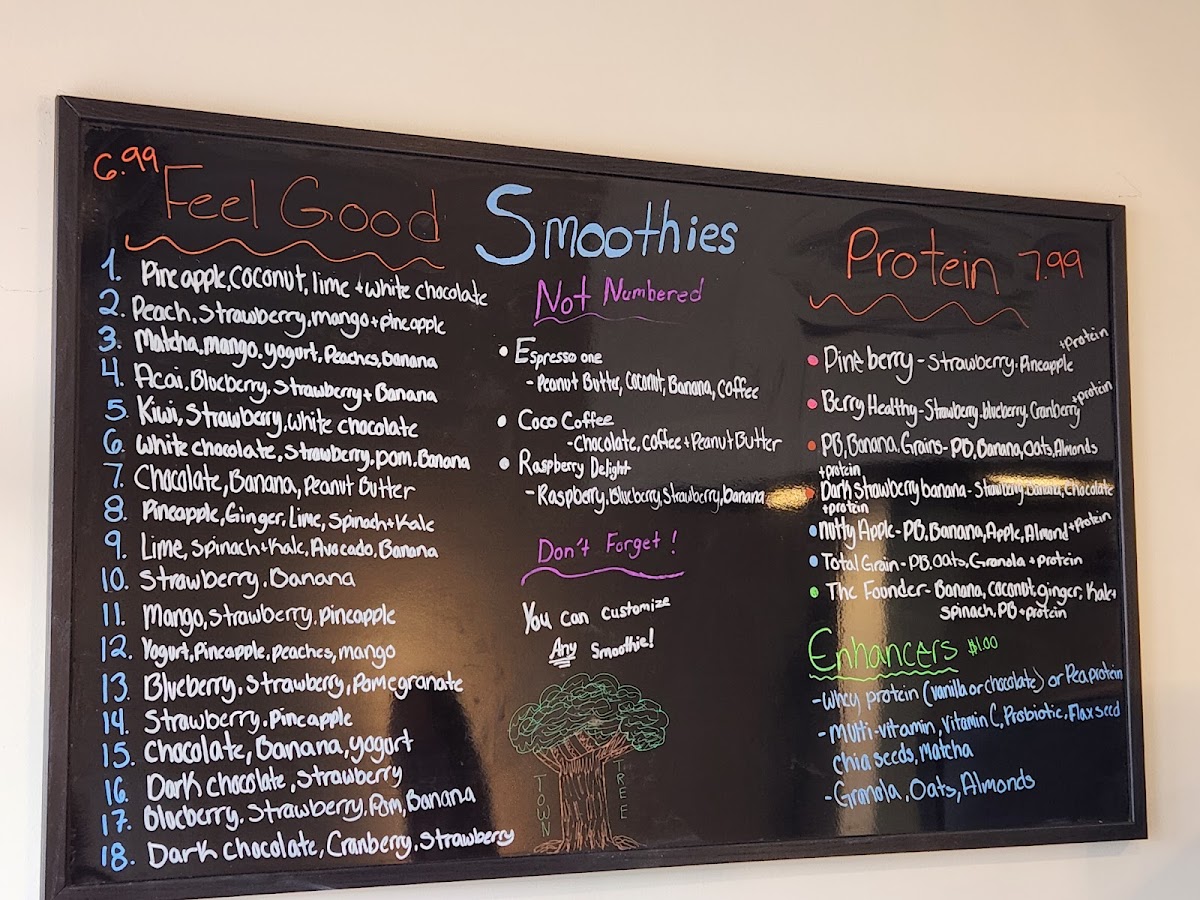 6.99
Feel Good
1. Pineapple, coconut, lime + white chocolate
2. Peach, strawberry, mango + pineapple
3. Matcha, mango, yogurt, Peaches, Banana
4. Acai, Blueberry, Strawberry + Banana
5. Kiwi, Strawberry, white chocolate
6. white chocolate, strawberry, pom, Banana
7. Chocolate, Banana, Peanut Butter
8. Pineapple, Ginger, Lime, spinach + Kale
9. Lime, spinach + Kale, Avocado, Banana
10. Strawberry, Banana
11. Mango, strawberry, pineapple
12. Yogurt, Pineapple, peaches, mango
13. Blueberry, strawberry, Pomegranate
14. Strawberry, Pineapple
15. Chocolate, Banana, yogurt
16. Dark chocolate, strawberry
17. Blueberry, Strawberry, Pom, Banana
18. Dark chocolate, Cranberry, Strawberry
Smoothies
Not Numbered
• Espresso one
- Peanut Butter, coconut, Banana, coffee
• Coco Coffee
- Chocolate, coffee + Peanut Butter
• Raspberry Delight
- Raspberry, Blueberry, Strawberry, banana
Don't Forget!
You can customize
Any smoothie!
TOWN
TREE
Protein 7.99
• Pine berry - Strawberry, Pineapple + protein
• Berry Healthy - Strawberry, blueberry, Cranberry + protein
• PB, Banana, Grains - PB, Banana, Oats, Almonds
+ protein
• Dark strawberry banana - Strawberry, banana, Chocolate
+ protein
• Nutty Apple - PB, Banana, Apple, Almond + Protein
• Total Grain - PB, Oats, Granola + protein
• The Founder - Banana, coconut, ginger, Kale +
spinach, PB + protein
Enhancers $1.00
- Whey protein (vanilla or chocolate) or Pea protein
- Multi-vitamin, Vitamin C, Probiotic, Flax seed
chia seeds, Matcha
- Granola, Oats, Almonds